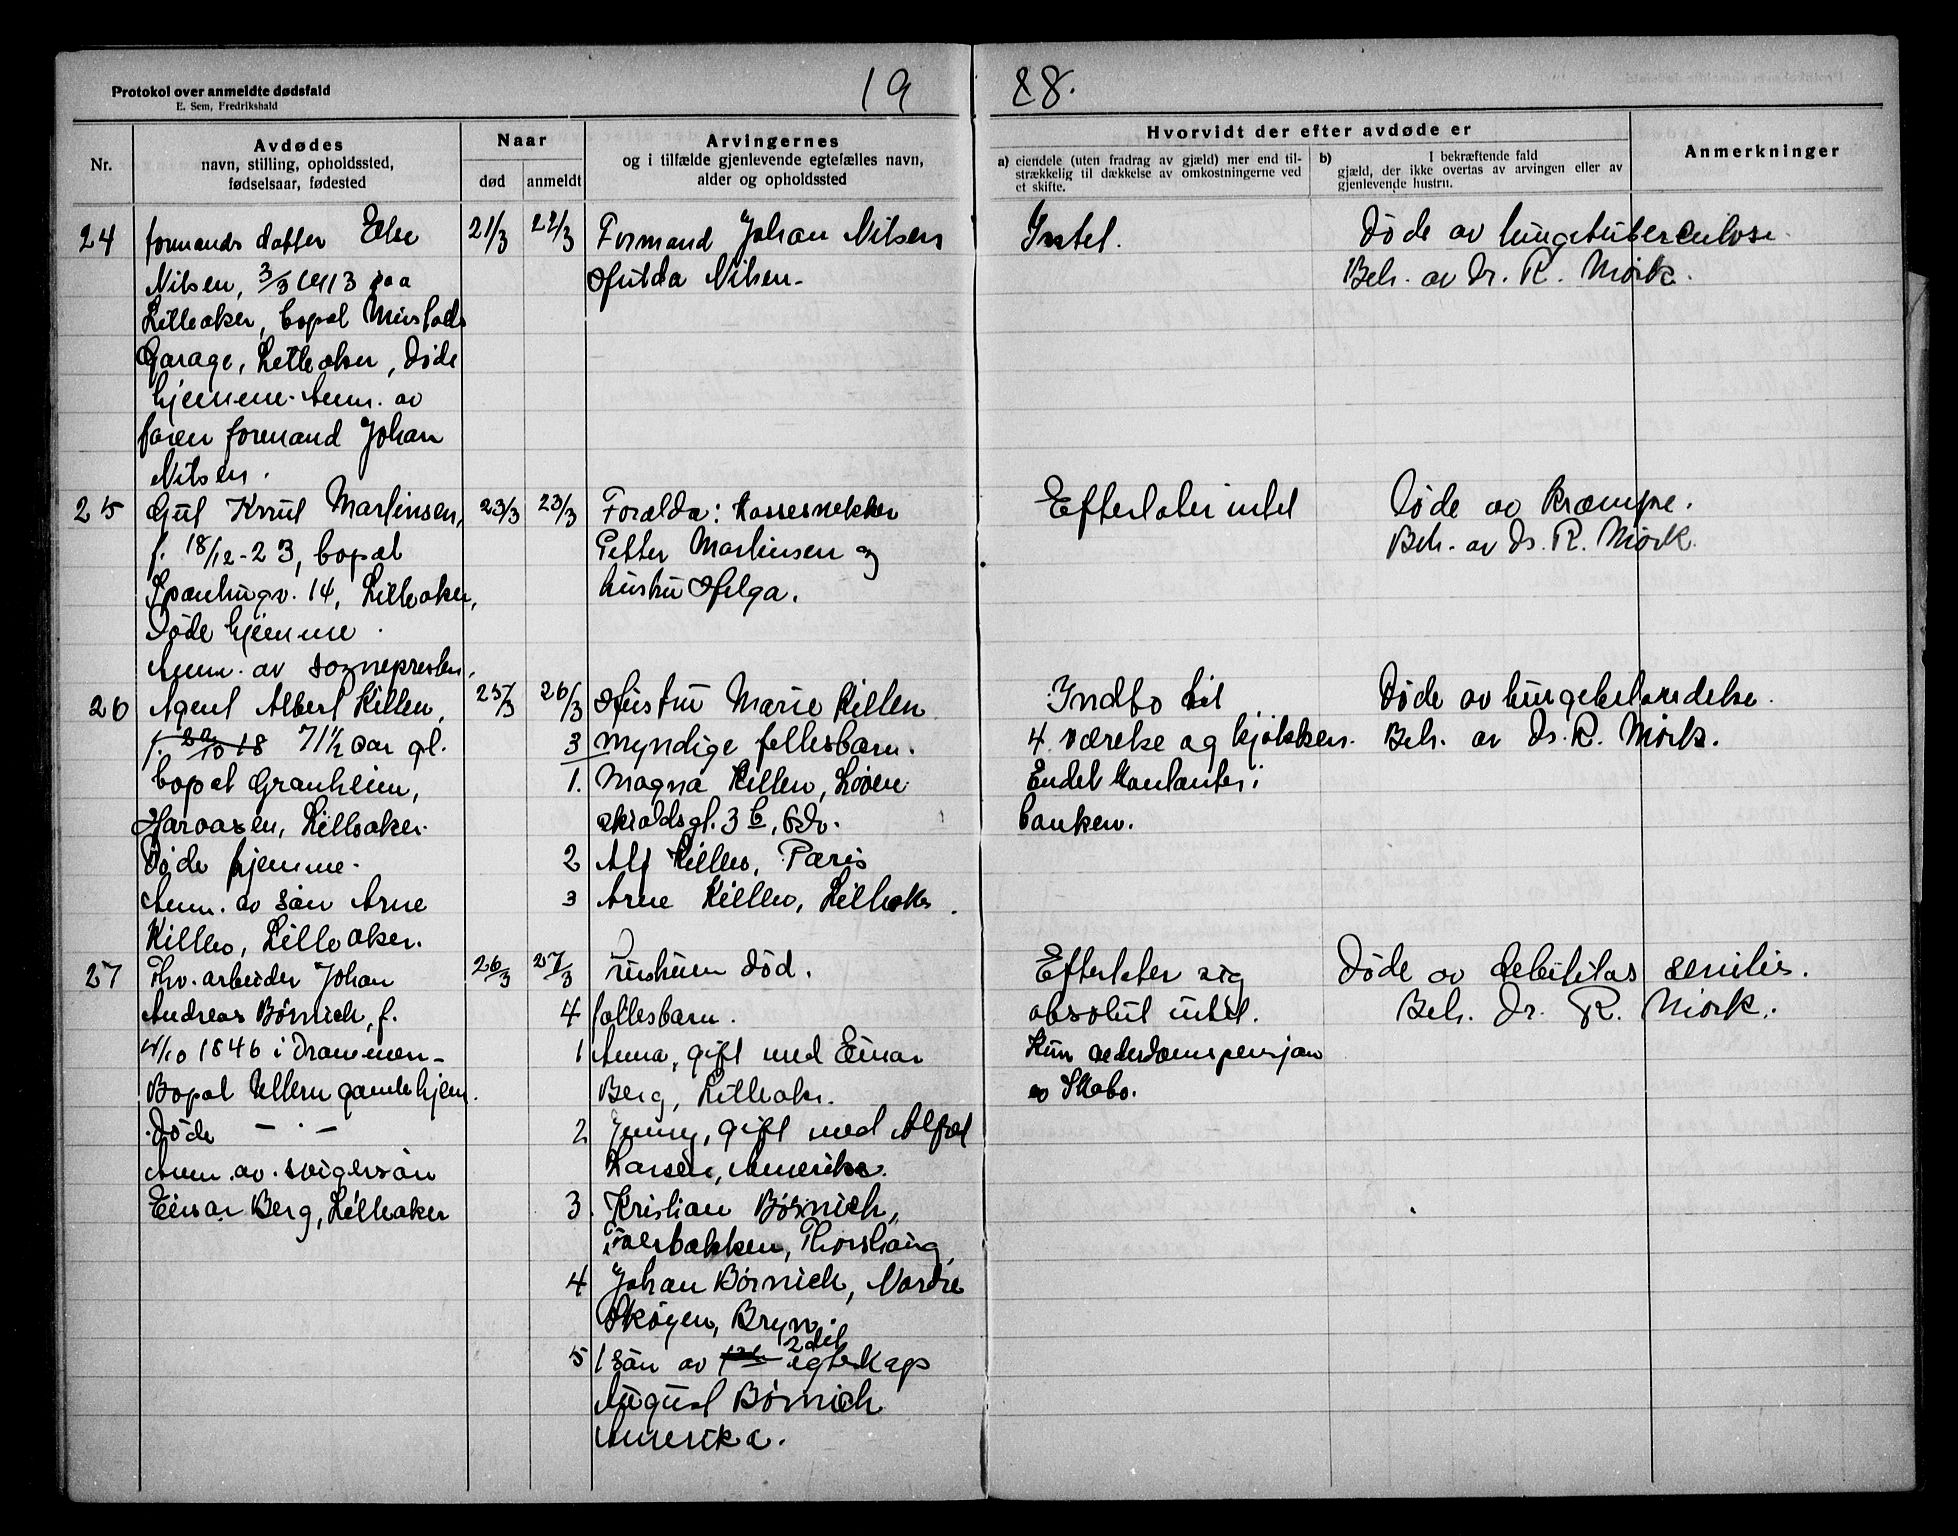 Protokol over anmeldte dødsfald
E. Sem, Fredrikshald
19 28.
Nr.
Avdødes
navn, stilling, opholdssted,
fødselsaar, fødested
Naar
død
anmeldt
Arvingernes
og i tilfælde gjenlevende egtefælles navn,
alder og opholdssted
Hvorvidt der efter avdøde er
a) eiendele (uten fradrag av gjæld) mer end til-
strækkelig til dækkelse av omkostningerne ved
et skifte.
b) I bekræftende fald
gjæld, der ikke overtas av arvingen eller av
gjenlevende hustru.
Anmerkninger
24
formands datter Else
Nilsen, 3/3 1913 paa
Lilleaker, bopæl Mustads
Garage, Lilleaker, Døde
hjemme. Anm. av
faren formand Johan
Nilsen.
21/3
22/3
Formand Johan Nilsen
Hulda Nilsen.
Intet.
Døde av lungetuberculose.
Beh. av Dr. R. Mörk.
25
Gut Knut Martinsen,
f. 18/12-23, bopæl
14, Lilleaker,
Døde hjemme.
Anm. av sognepresten.
23/3
23/3
Forældre: Kassesnekker
Petter Martinsen og
hustru Helga.
Efterlater intet
Døde av krampe.
Beh. av Dr. R. Mörk.
26
Agent Albert Killen,
71½ aar gl.
bopæl Granheim,
Lilleaker.
Døde hjemme.
Anm. av sön Arne
Killen, Lilleaker.
25/3
26/3
Hustru Marie Killen
3 myndige fellesbarn.
1. Magna Killen, Løven
skioldsgt. 3 b, Oslo.
2 Alf Killen, Paris
3 Arne Killen, Lilleaker.
Indbo til
4 værelse og kjøkken.
Endel kontanter i
banken.
Døde av lungebetændelse.
Beh. av Dr. R. Mörk.
27
Fhv. arbeider Johan
Andreas Börnich, f.
/10 1846 i Drammen.
Bopæl Ullern gamlehjem.
Døde — " —
Anm. av svigersön
Einar Berg, Lilleaker
26/3
27/3
Hustruen død.
4 fællesbarn.
1 Anna, gift med Einar
Berg, Lilleaker.
2 Jenny, gift med Alfred
Larsen, Amerika.
3. Kristian Börnich,
Thorshaug
4 Johan Börnich, Nordre
Skøyen, Bryn.
5 1 sön av 2det egteskap
August Börnich
Amerika.
Efterlater sig
absolut intet.
Kun alderdomspensjon
av Skabo.
Døde av debilitas senilis.
Beh. Dr. R. Mörk.